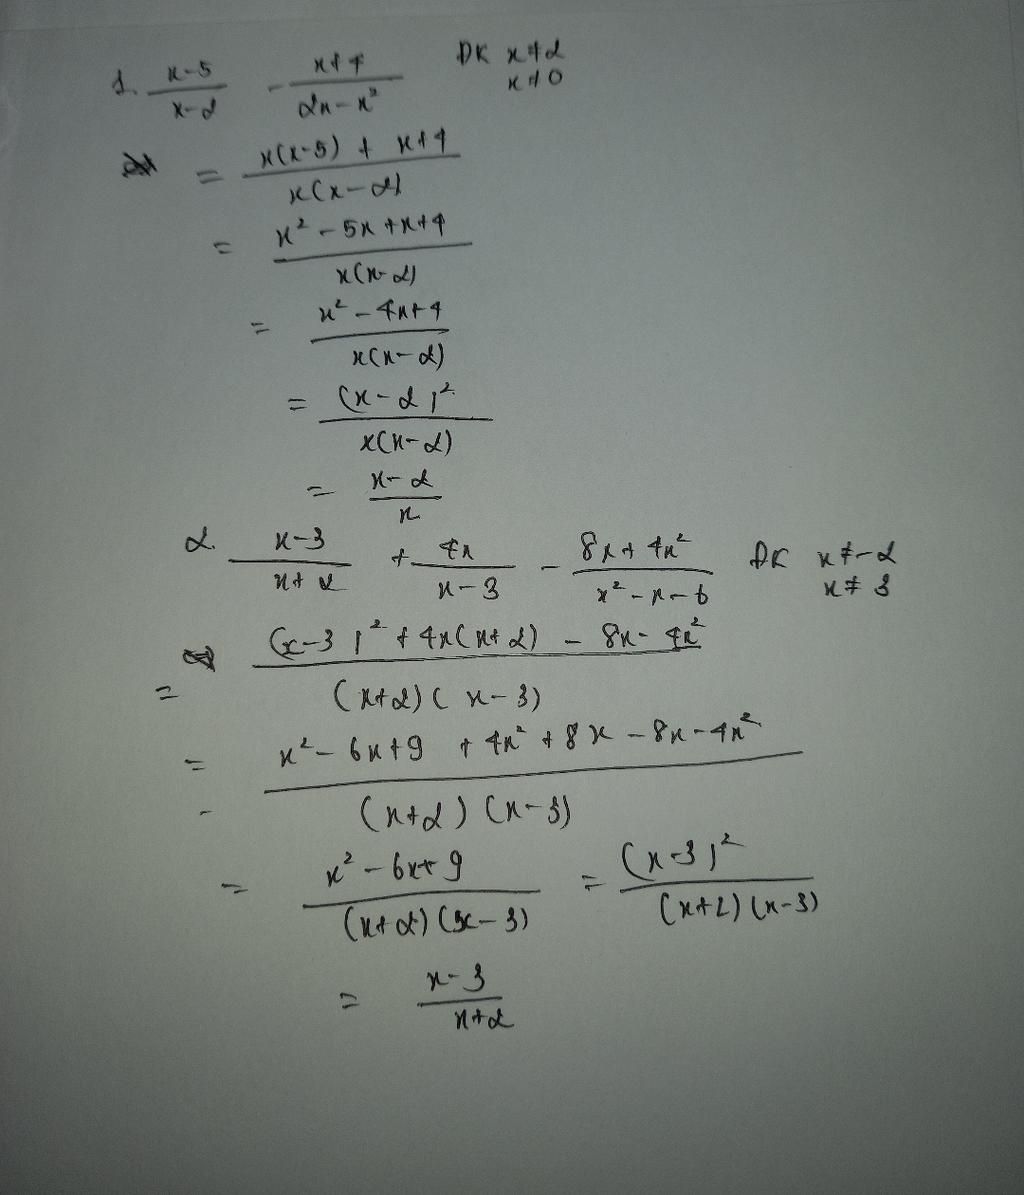 1. \frac{x-5}{x-2} - \frac{x+4}{2x-x^2} ĐK x ≠ 2
x ≠ 0
= \frac{x(x-5) + x+4}{x(x-2)}
= \frac{x^2 - 5x + x + 4}{x(x-2)}
= \frac{x^2 - 4x + 4}{x(x-2)}
= \frac{(x-2)^2}{x(x-2)}
= \frac{x-2}{x}
2. \frac{x-3}{x+2} + \frac{4x}{x-3} - \frac{8x + 4x^2}{x^2 - x - 6} ĐK x ≠ -2
x ≠ 3
= \frac{(x-3)^2 + 4x(x+2) - 8x - 4x^2}{(x+2)(x-3)}
= \frac{x^2 - 6x + 9 + 4x^2 + 8x - 8x - 4x^2}{(x+2)(x-3)}
= \frac{x^2 - 6x + 9}{(x+2)(x-3)} = \frac{(x-3)^2}{(x+2)(x-3)}
= \frac{x-3}{x+2}